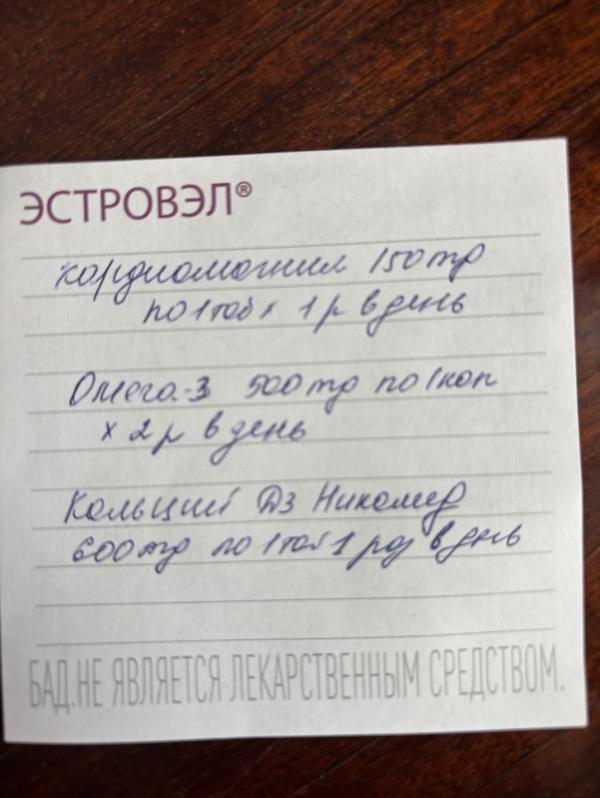 ЭСТРОВЭЛ®
Кардиомагнил 150 mg
по 1 таб x 1 р в день
Омега-3 500 mg по 1 кап
x 2 р в день
Кальций Д3 Никомед
600 mg по 1 таб 1 раз в день
БАД. НЕ ЯВЛЯЕТСЯ ЛЕКАРСТВЕННЫМ СРЕДСТВОМ.